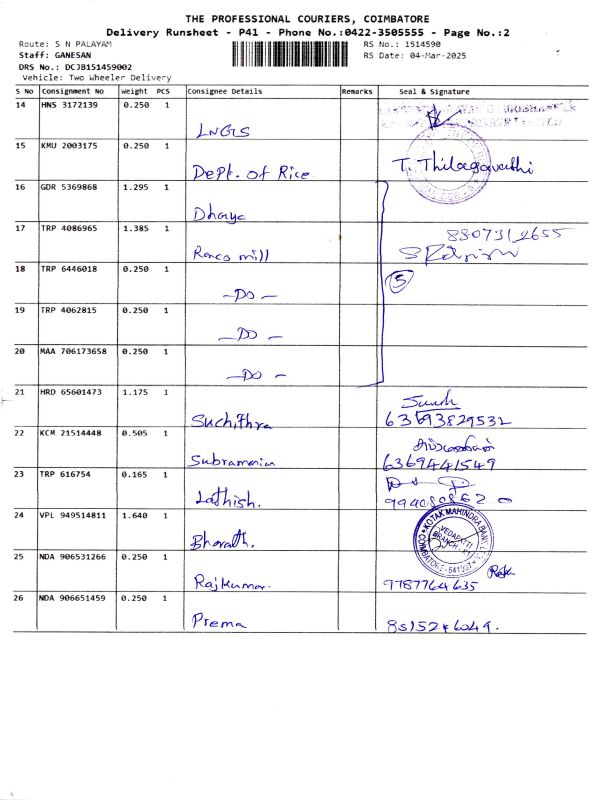 THE PROFESSIONAL COURIERS, COIMBATORE
Delivery Runsheet - P41 - Phone No.:0422-3505555 - Page No.:2
Route: S N PALAYAM RS No.: 1514590
Staff: GANESAN RS Date: 04-Mar-2025
DRS No.: DCJB151459002
Vehicle: Two Wheeler Delivery
S No Consignment No Weight PCS Consignee Details Remarks Seal & Signature
14 HNS 3172139 0.250 1
LNGS
15 KMU 2003175 0.250 1
Dept. of Rice T. Thilagavathi
16 GDR 5369868 1.295 1
Dhaya
17 TRP 4086965 1.385 1 8807312655
Ranco mill
18 TRP 6446018 0.250 1 5
-DO-
19 TRP 4062815 0.250 1
-DO-
20 MAA 706173658 0.250 1
-DO-
21 HRD 65601473 1.175 1
Suchithra 63693829532
22 KCM 21514448 0.505 1
Subramani 6369441549
23 TRP 616754 0.165 1
Lathish.
24 VPL 949514811 1.640 1 KOTAK MAHINDRA BANK
Bharath. VEDAPATTI BRANCH
25 NDA 906531266 0.250 1
Rajkumar. 9787764635
26 NDA 906651459 0.250 1
Prema 8515246049.